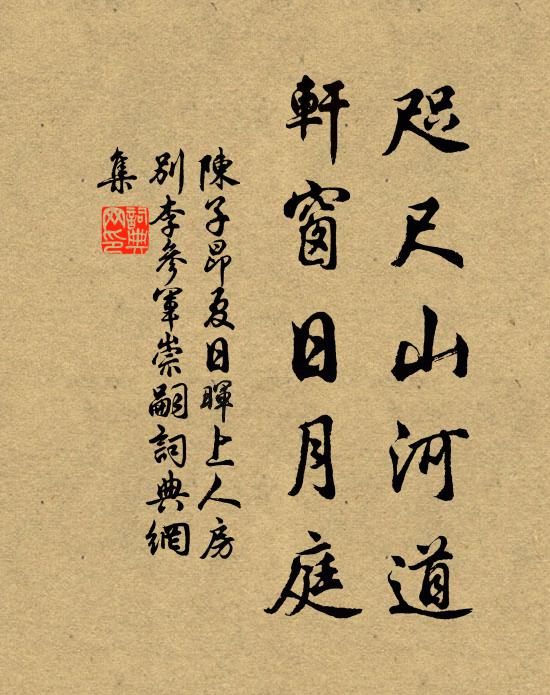 咫尺山河道
軒窗日月庭
陳子昂夏日暉上人房
別李參軍崇嗣詞典網
集
詞典
网印